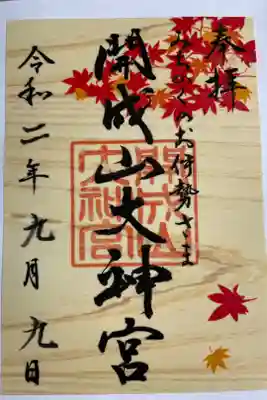 奉拝
みちのくのお伊勢さま
開成山大神宮
令和二年九月九日
開成山大神宮